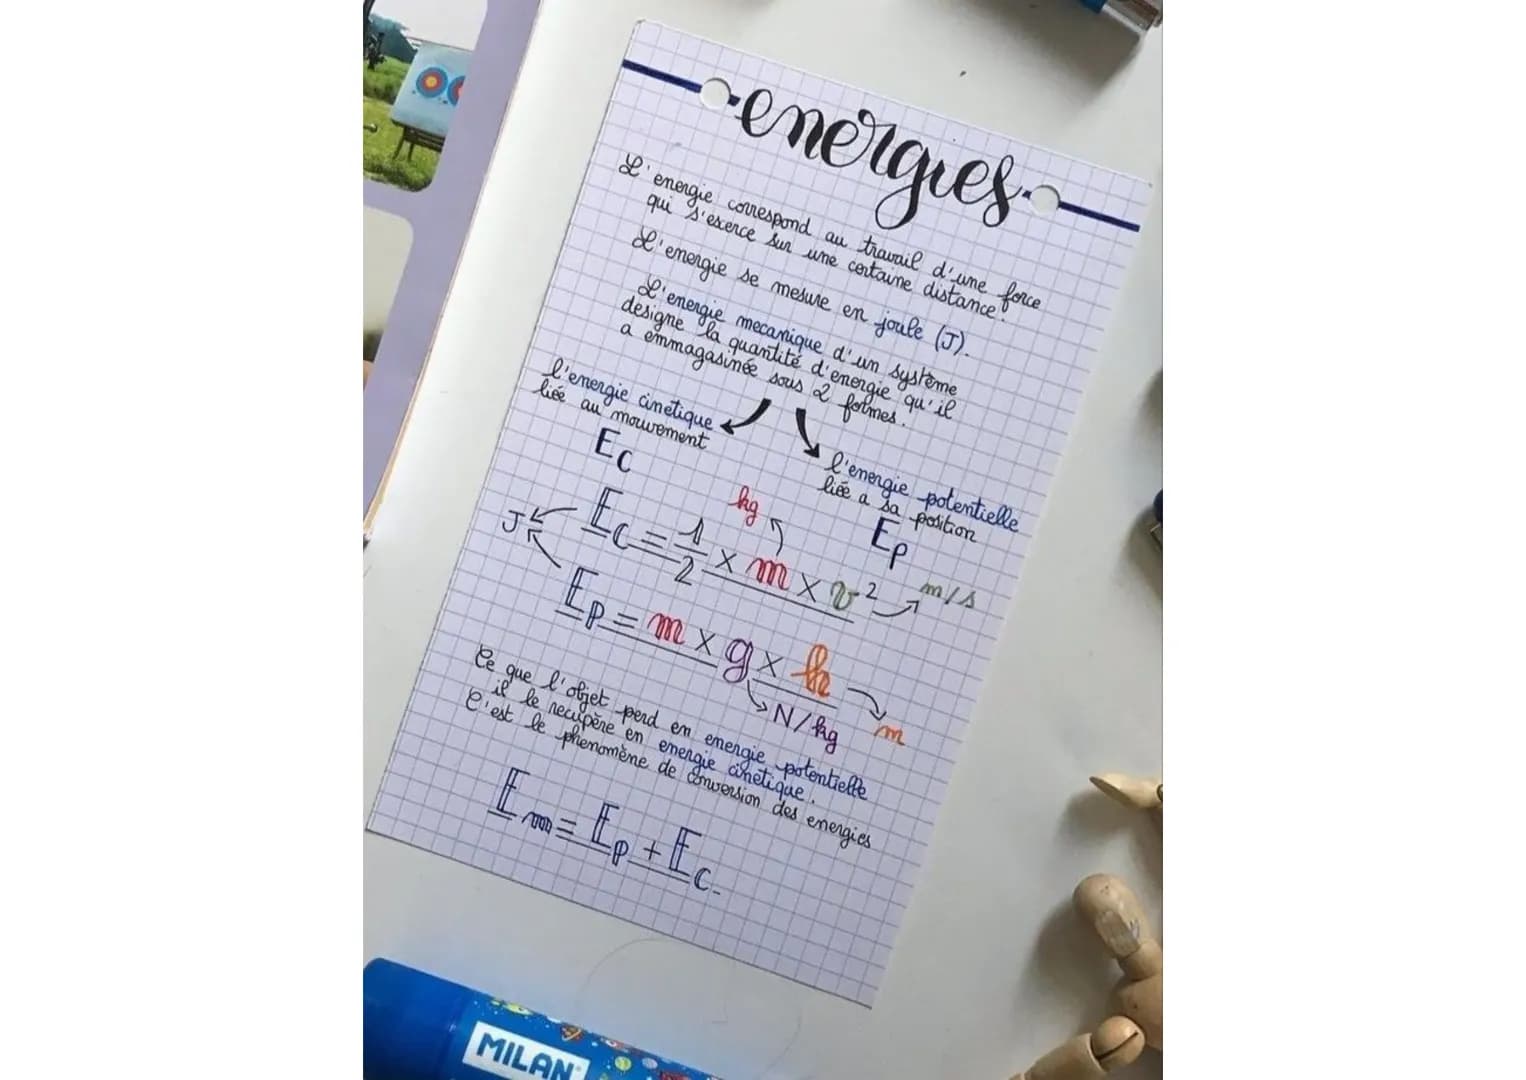 energies
L'energie correspond au travail d'une force
qui s'exerce sur une certaine distance.
L'energie se mesure en joule (J).
L'energie mecanique d'un système
designe la quantité d'energie qu'il
a emmagasinée sous 2 formes.
l'energie cinetique
liée au mouvement
Ec
l'energie potentielle
liée a sa position
Ep
kg
J Ec = 1/2 x m x v² m/s
Ep = m x g x h
N/kg m
Ce que l'objet perd en energie potentielle
il le recupère en energie cinetique.
C'est le phenomène de conversion des energies
Em = Ep + Ec.
MILAN